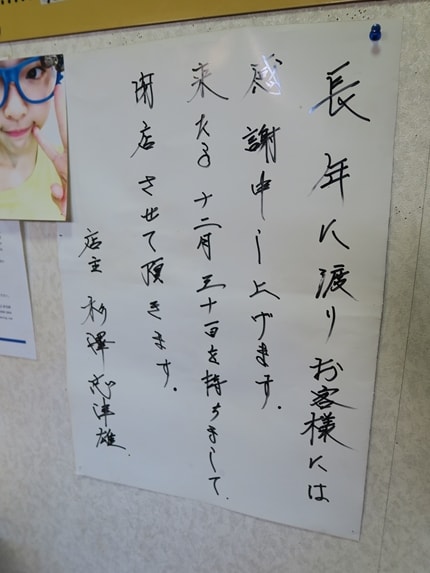 長年に渡りお客様には
感謝申し上げます.
来たる十二月三十日を持ちまして.
閉店させて頂きます.
店主 杉澤志津雄.